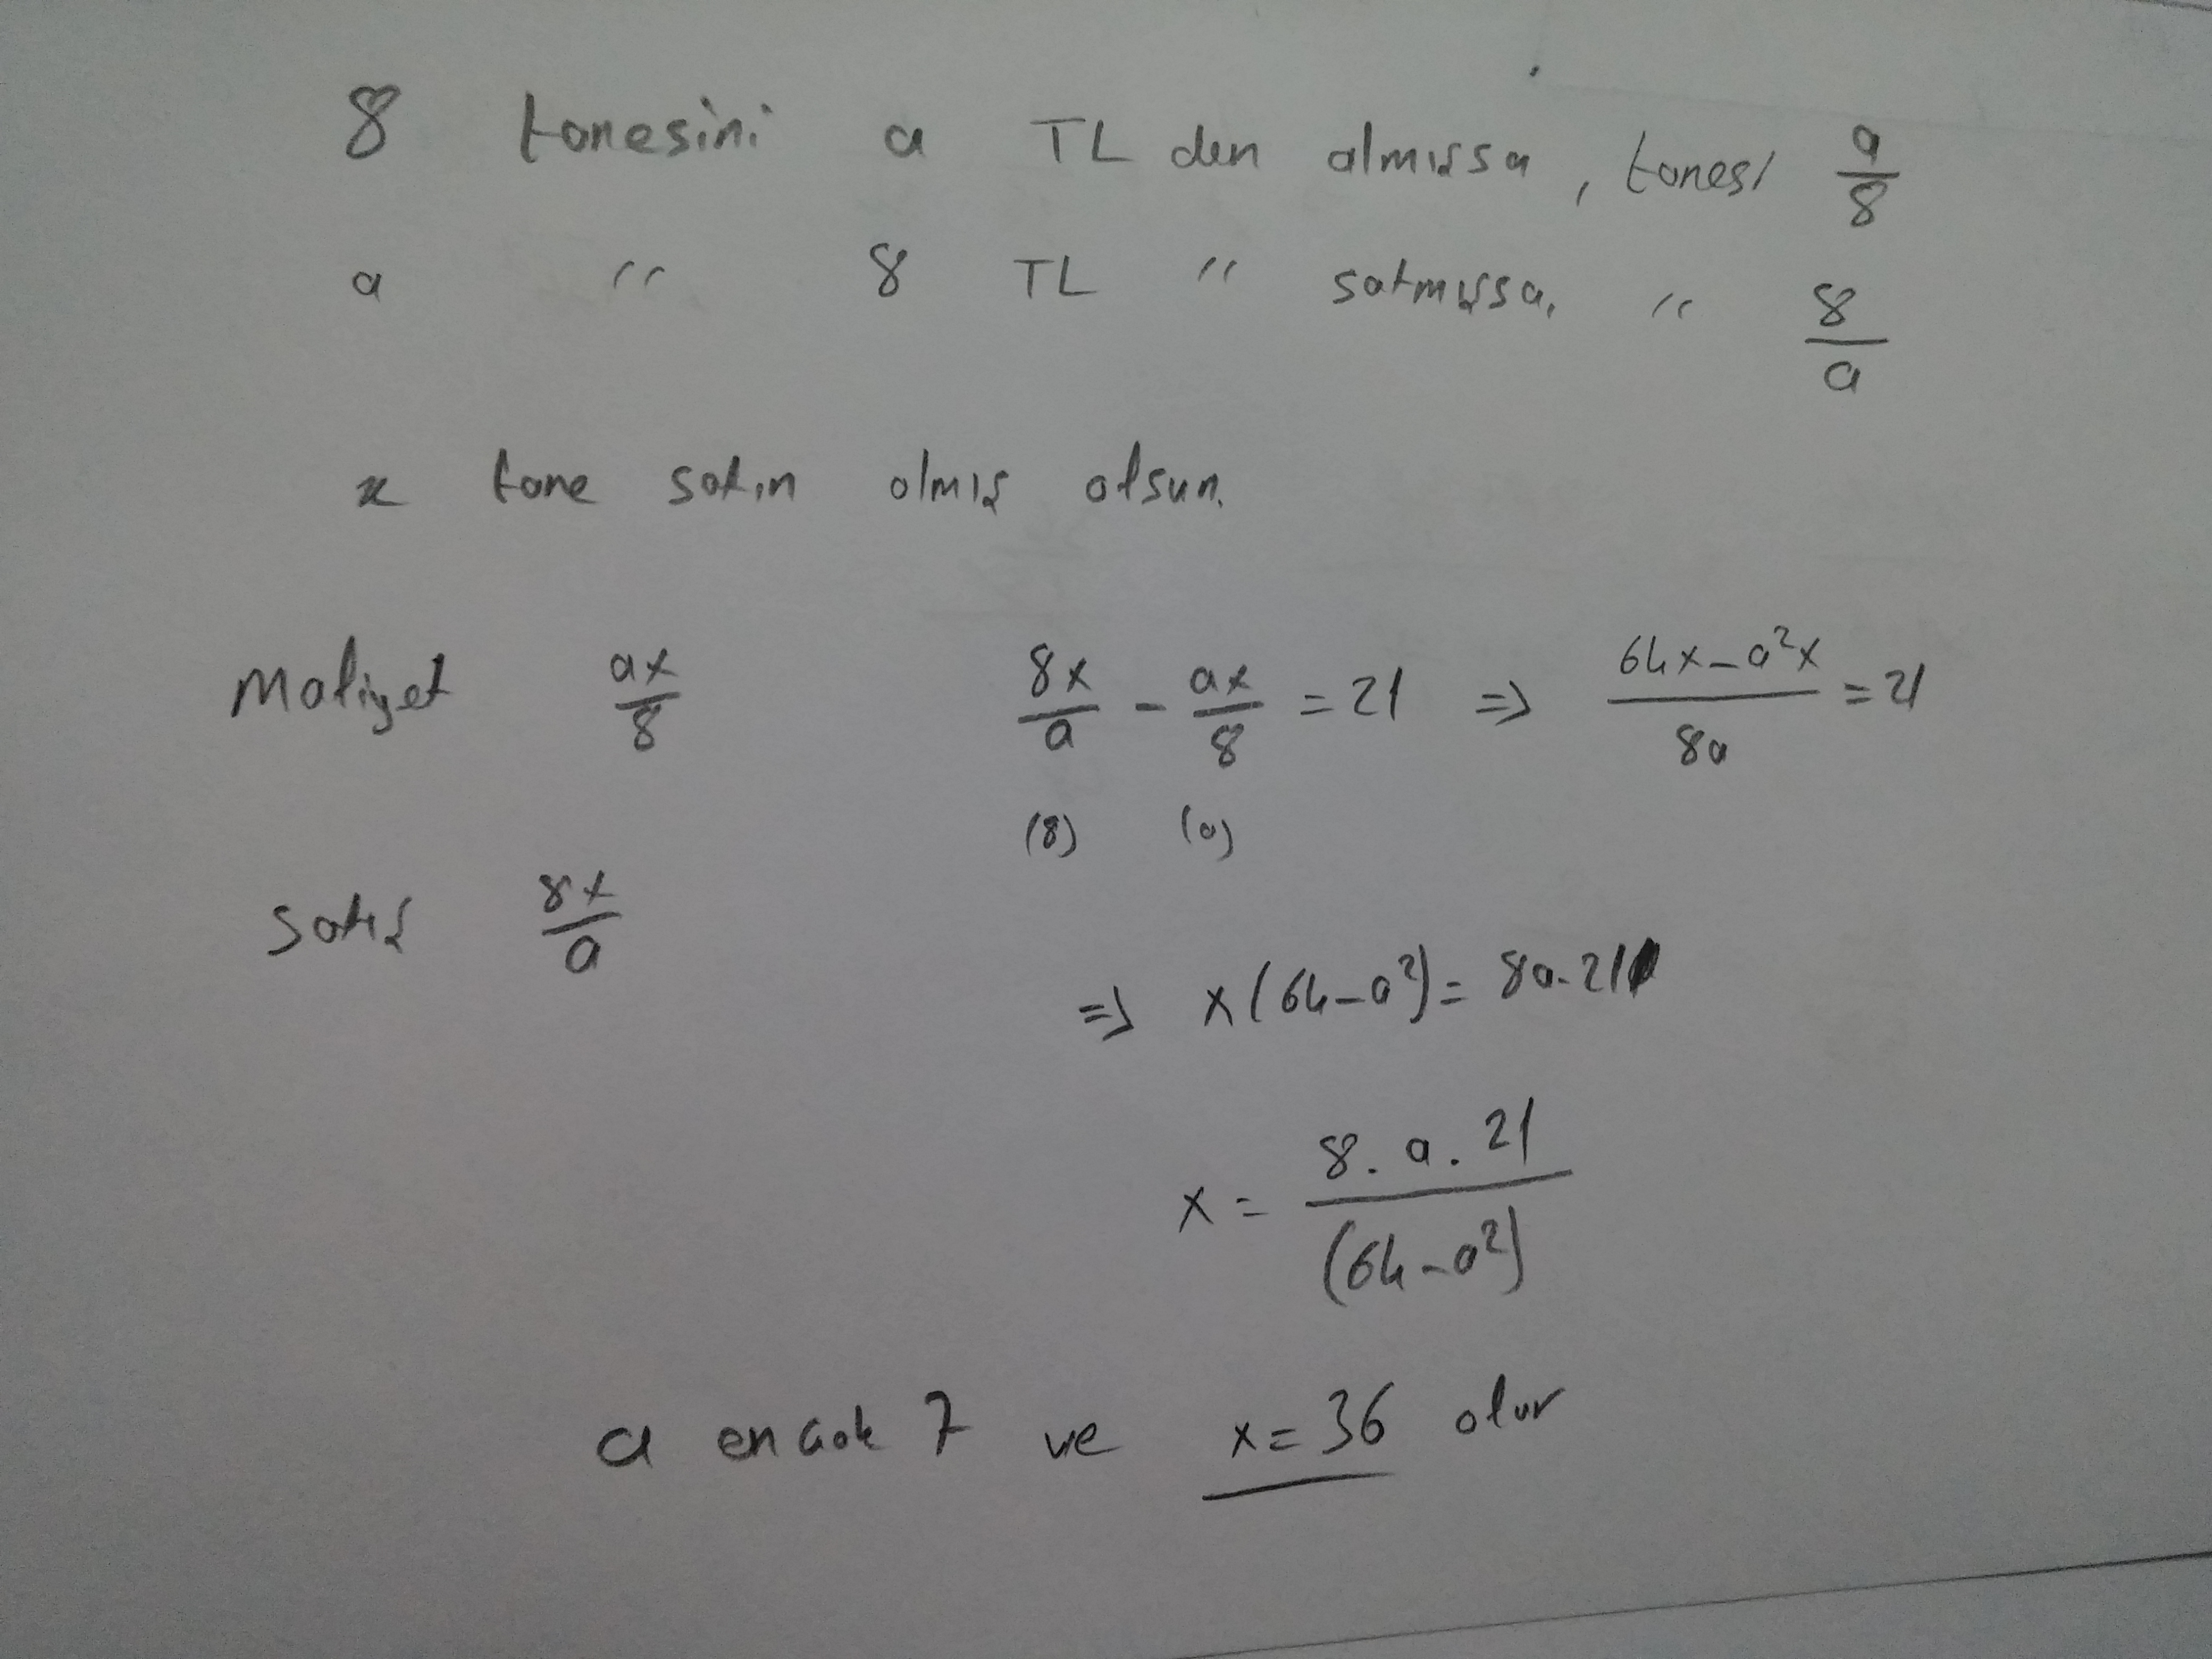 8 tanesini a TL den almışsa, tanesi a/8
a " 8 TL " satmışsa, " 8/a
x tane satın almış olsun.
Maliyet ax/8 8x/a - ax/8 = 21 ⇒ (64x-a²x)/8a = 21
(8) (a)
satış 8x/a
⇒ x(64-a²) = 8a.21
x = 8.a.21/(64-a²)
a en çok 7 ve x=36 olur